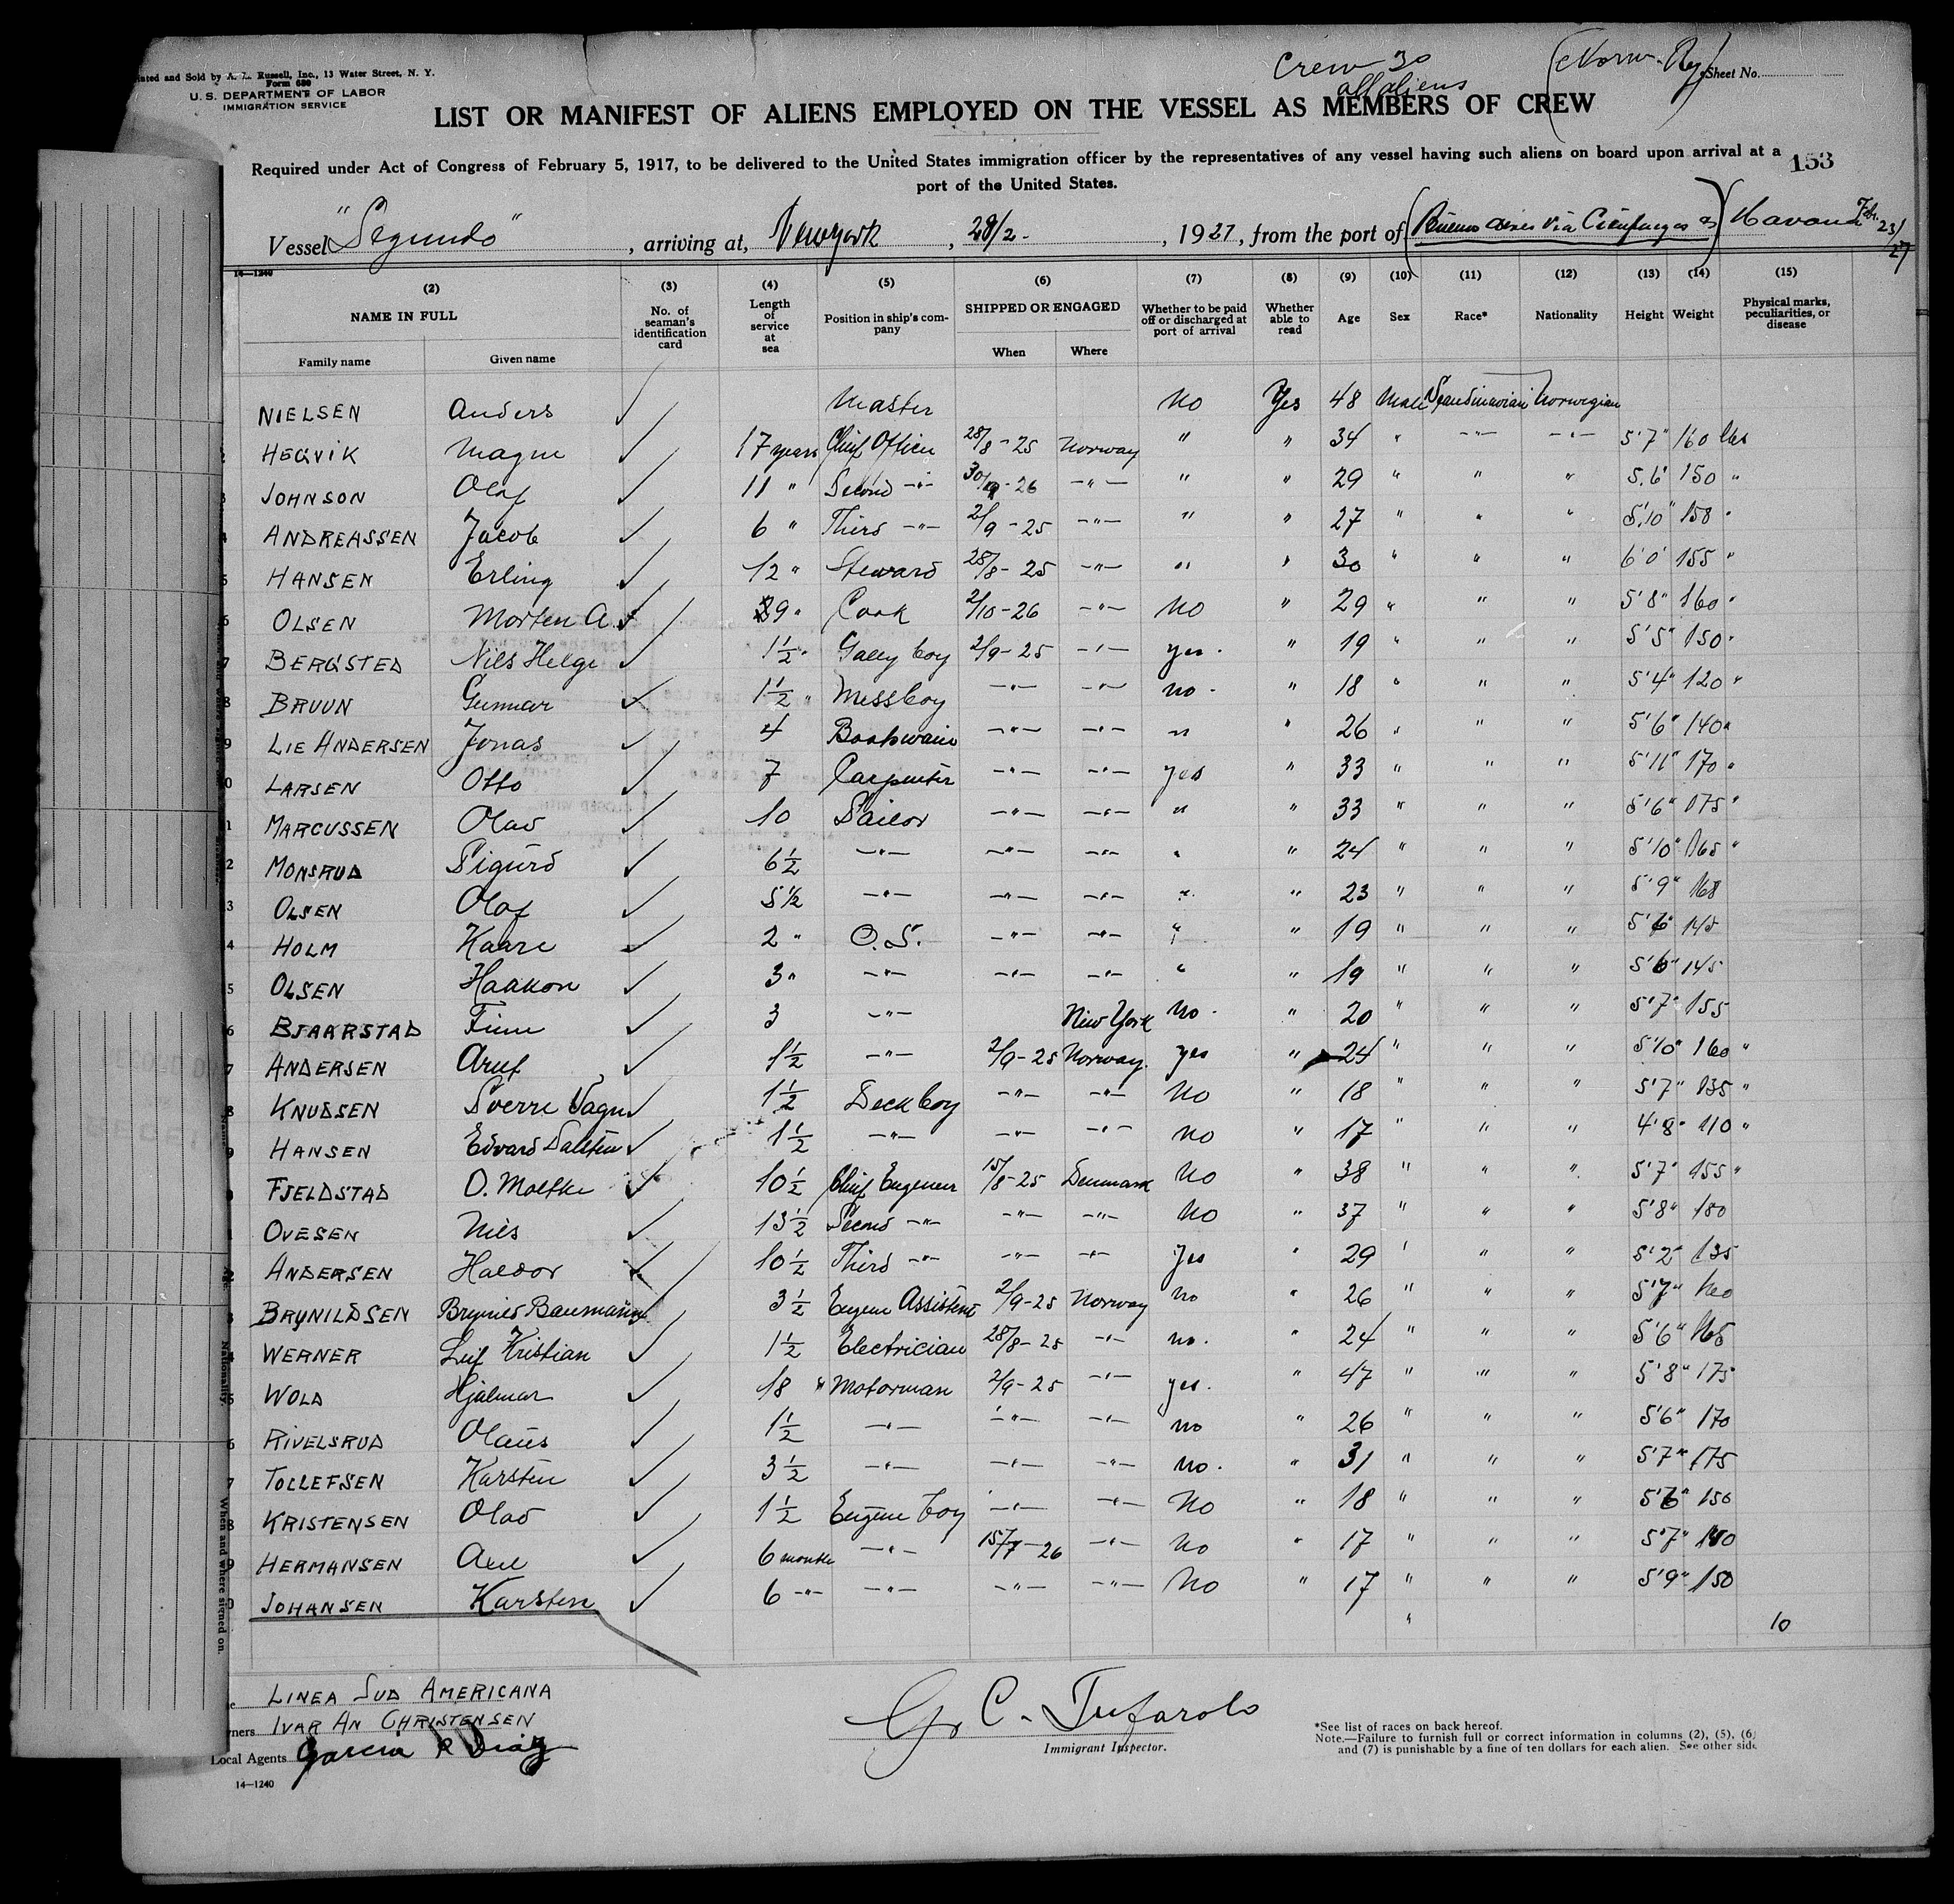 Crew 30
all aliens
(Norw. Reg)
Sheet No.
Printed and Sold by A. L. Russell, Inc., 13 Water Street, N. Y.
Form 689
U. S. DEPARTMENT OF LABOR
IMMIGRATION SERVICE
LIST OR MANIFEST OF ALIENS EMPLOYED ON THE VESSEL AS MEMBERS OF CREW
Required under Act of Congress of February 5, 1917, to be delivered to the United States immigration officer by the representatives of any vessel having such aliens on board upon arrival at a
port of the United States.
153
Vessel "Segundo", arriving at, Newyork, 28/2-, 1927, from the port of (Buenos Aires via Cienfuegos &) Havana Feb. 23/27
14—1240
(2) (3) (4) (5) (6) (7) (8) (9) (10) (11) (12) (13) (14) (15)
NAME IN FULL
Family name Given name
No. of seaman's identification card
Length of service at sea
Position in ship's company
SHIPPED OR ENGAGED
When Where
Whether to be paid off or discharged at port of arrival
Whether able to read
Age Sex Race* Nationality Height Weight
Physical marks, peculiarities, or disease
NIELSEN Anders ✓ Master No Yes 48 Male Scandinavian Norwegian
HEGVIK Magne ✓ 17 years Chief Officer 28/8-25 Norway " " 34 " -"- -"- 5'7" 160 lbs
JOHNSON Olaf ✓ 11 " Second -"- 30/9-26 -"- " " 29 " " " 5.6' 150 "
ANDREASSEN Jacob ✓ 6 " Third -"- 2/9-25 -"- " " 27 " " " 5'10" 158 "
HANSEN Erling ✓ 12 " Steward 28/8-25 -"- " " 30 " " " 6'0' 155 "
OLSEN Morten A. ✓ 9 " Cook 2/10-26 -"- No " 29 " " " 5'8" 160 "
BERGSTED Nils Helge ✓ 1½ " Galley boy 2/9-25 -"- yes. " 19 " " " 5'5" 150 "
BRUUN Gunnar ✓ 1½ " Messboy -"- -"- no. " 18 " " " 5'4" 120 "
LIE ANDERSEN Jonas ✓ 4 Boatswain -"- -"- " " 26 " " " 5'6" 140 "
LARSEN Otto ✓ 7 Carpenter -"- -"- yes " 33 " " " 5'11" 170 "
MARCUSSEN Olav ✓ 10 Sailor -"- -"- " " 33 " " " 5'6" 175 "
MONSRUD Sigurd ✓ 6½ -"- -"- -"- " " 24 " " " 5'10" 165 "
OLSEN Olaf ✓ 5½ -"- -"- -"- " " 23 " " " 5'9" 168
HOLM Kaare ✓ 2 " O.S. -"- -"- " " 19 " " " 5'6" 145
OLSEN Haakon ✓ 3 " -"- -"- -"- " " 19 " " " 5'6" 145
BJAARSTAD Finn ✓ 3 -"- New York No. " 20 " " " 5'7" 155
ANDERSEN Arnt ✓ 1½ -"- 2/9-25 Norway yes " 24 " " " 5'10" 160 "
KNUDSEN Sverre Vagn ✓ 1½ Deck boy -"- -"- No " 18 " " " 5'7" 135 "
HANSEN Edvard Dalsten ✓ 1½ -"- -"- -"- no " 17 " " " 4'8" 110 "
FJELDSTAD O. Moltke ✓ 10½ Chief Engeneer 15/8-25 Denmark No " 38 " " " 5'7" 155 "
OVESEN Niels ✓ 13½ Second -"- -"- -"- No " 37 " " " 5'8" 180
ANDERSEN Halvor ✓ 10½ Third -"- -"- -"- Yes " 29 " " " 5'2" 135
BRYNILDSEN Baumann ✓ 3½ Engene Assistent 2/9-25 Norway no " 26 " " " 5'7"
WERNER Leif Kristian ✓ 1½ Electrician 28/8-25 -"- no. " 24 " " " 5'6" 165
WOLD Hjalmar ✓ 18 " Motorman 2/9-25 -"- yes. " 47 " " " 5'8" 175
RIVELSRUD Olaus ✓ 1½ -"- -"- -"- no " 26 " " " 5'6" 170
TOLLEFSEN Karsten ✓ 3½ -"- -"- -"- no. " 31 " " " 5'7" 175
KRISTENSEN Olav ✓ 1½ Engene boy -"- -"- No " 18 " " " 5'6" 150
HERMANSEN Axel ✓ 6 months -"- 15/7-26 -"- No " 17 " " " 5'7" 140
JOHANSEN Karsten ✓ 6 -"- -"- -"- -"- No " 17 " " " 5'9" 150
" 10
LINEA SUD AMERICANA
Owners IVAR AN CHRISTENSEN
Local Agents Garcia & Diaz
14—1240
G. C. Tufarolo
Immigrant Inspector.
*See list of races on back hereof.
Note.—Failure to furnish full or correct information in columns (2), (5), (6)
and (7) is punishable by a fine of ten dollars for each alien. See other side
Nationality.
When and where signed on.